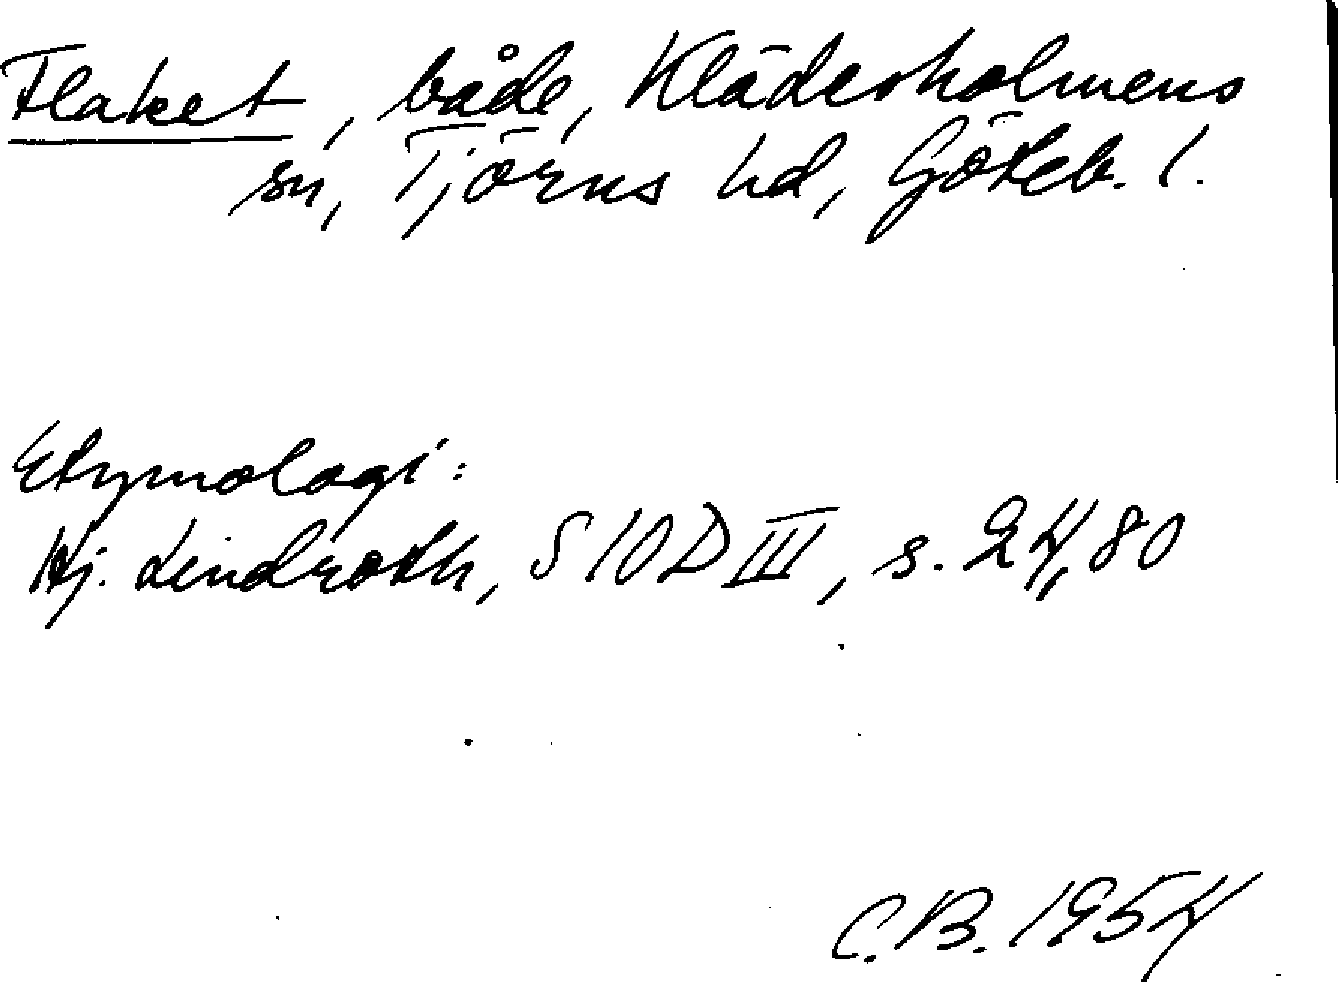 Flaket, både, Klädesholmens
sn, Tjörns hd, Göteb. l.
Etymologi:
Hj. Lindroth, SIOD III, s. 24, 80
C.B. 1954